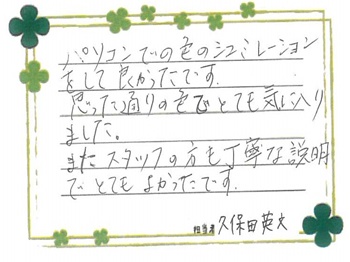 パソコンでの色のシュミレーション
をして良かったです.
思った通りの色でとても気に入り
ました。
またスタッフの方も丁寧な説明
で とても よかったです.
担当者 久保田英文